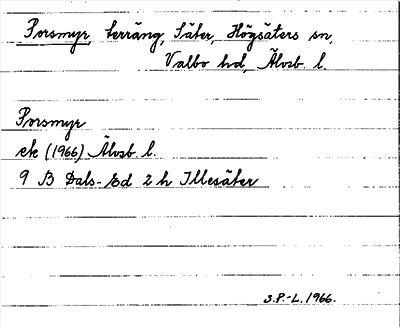 Porsmyr, terräng, Säter, Högsäters sn,
Valbo hd, Älvsb. l.
Porsmyr
ek (1966) Älvsb. l.
9 B Dals-Ed 2 h Illesäter
S.P.-L. 1966.